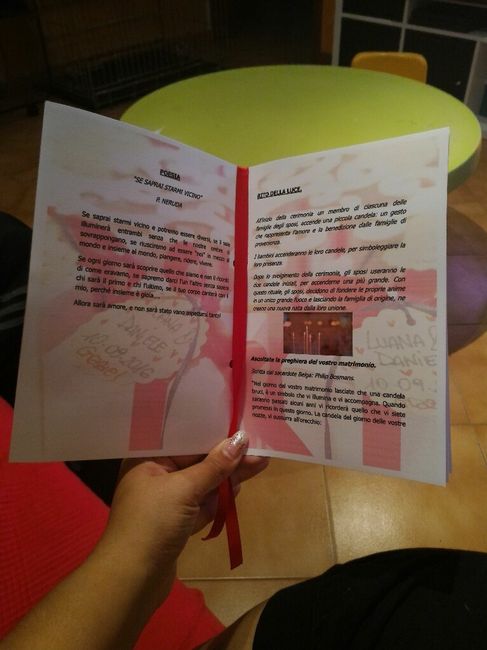 POESIA
"SE SAPRAI STARMI VICINO"
P. NERUDA
Se saprai starmi vicino e potremo essere diversi, se il sole
illuminerà entrambi senza che le nostre ombre si
sovrappongano, se riusciremo ad essere "noi" in mezzo al
mondo e insieme al mondo, piangere, ridere, vivere.
Se ogni giorno sarà scoprire quello che siamo e non il ricordo
di come eravamo, se sapremo darci l'un l'altro senza sapere
chi sarà il primo e chi l'ultimo, se il tuo corpo canterà con il
mio, perché insieme è gioia...
Allora sarà amore, e non sarà stato vano aspettarsi tanto!
RITO DELLA LUCE.
All'inizio della cerimonia un membro di ciascuna delle
famiglie degli sposi, accende una piccola candela: un gesto
che rappresenta l'amore e la benedizione dalle famiglie di
provenienza.
I bambini accenderanno le loro candele, per simboleggiare la
loro presenza.
Dopo lo svolgimento della cerimonia, gli sposi useranno le
candele iniziali, per accenderne una più grande. Con
questo rituale, gli sposi, decidono di fondere le proprie anime
in un unico grande fuoco e lasciando la famiglia di origine, ne
creano una nuova nata dalla loro unione.
Ascoltate la preghiera del vostro matrimonio.
Scritta dal sacerdote Belga: Philip Bosmans.
"Nel giorno del vostro matrimonio lasciate che una candela
bruci, è un simbolo che vi illumina e vi accompagna. Quando
saranno passati alcuni anni vi ricorderà quello che vi siete
promessi in questo giorno. La candela del giorno delle vostre
nozze, vi sussurra all'orecchio:
LUANA &
DANIE
10 09